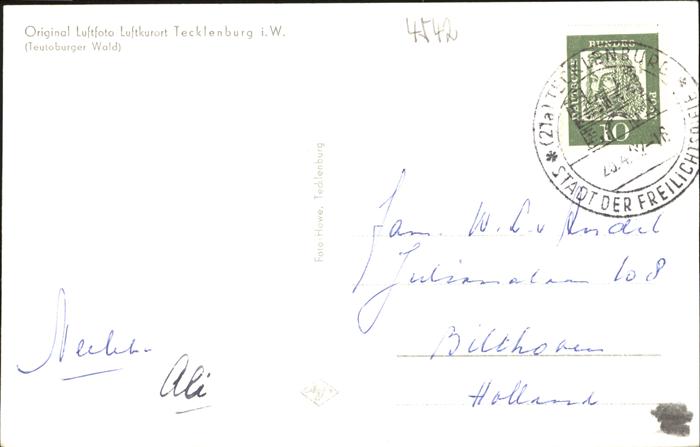 Original Luftfoto Luftkurort Tecklenburg i.W.
(Teutoburger Wald)
4542
DEUTSCHE BUNDESPOST
10
(21a) TECKLENBURG
STADT DER FREILICHTSPIELE
Foto-Howe, Tecklenburg
Fam. W. L. v Andel
Julianalaan 108
Bilthoven
Holland
Ali